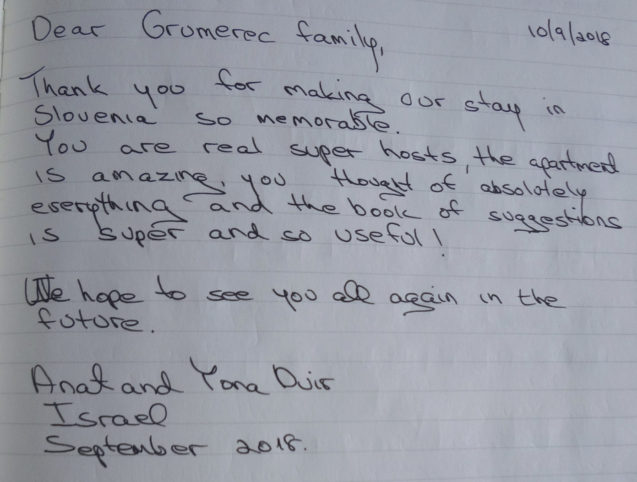 Dear Gromerec family, 10/9/2018
Thank you for making our stay in
Slovenia so memorable.
You are real super hosts, the apartment
is amazing, you thought of absolotely
everything and the book of suggestions
is super and so useful!
We hope to see you all again in the
future.
Anat and Yona
Israel
September 2018.